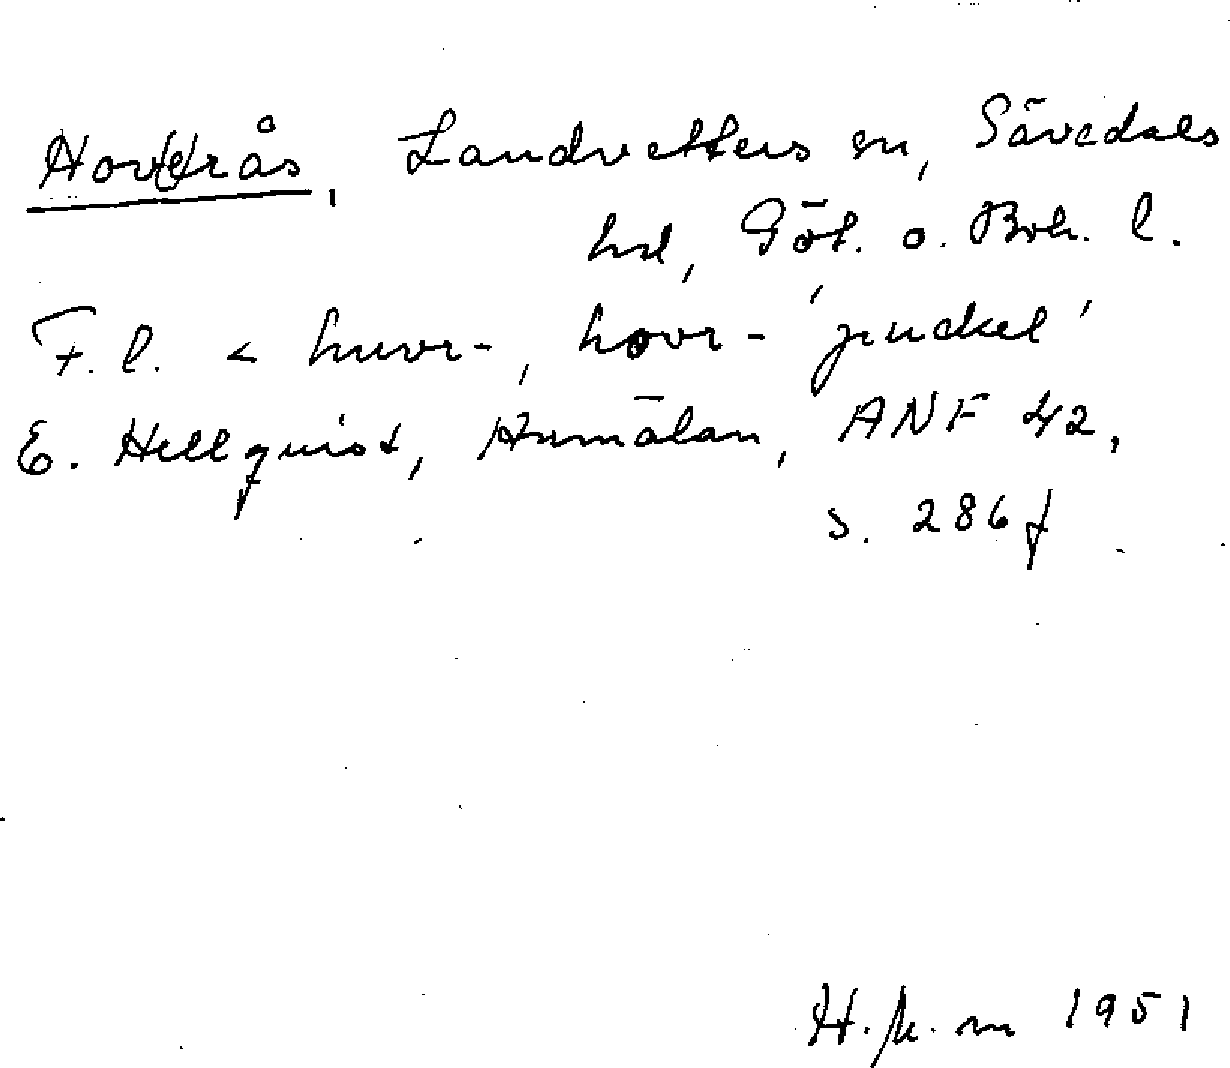 Hov(e)rås, Landvetters sn, Sävedals
hd, Göt. o. Boh. l.
F. l. < huvr-, hovr- 'puckel'
E. Hellquist, Anmälan, ANF 42,
s. 286 f
1951